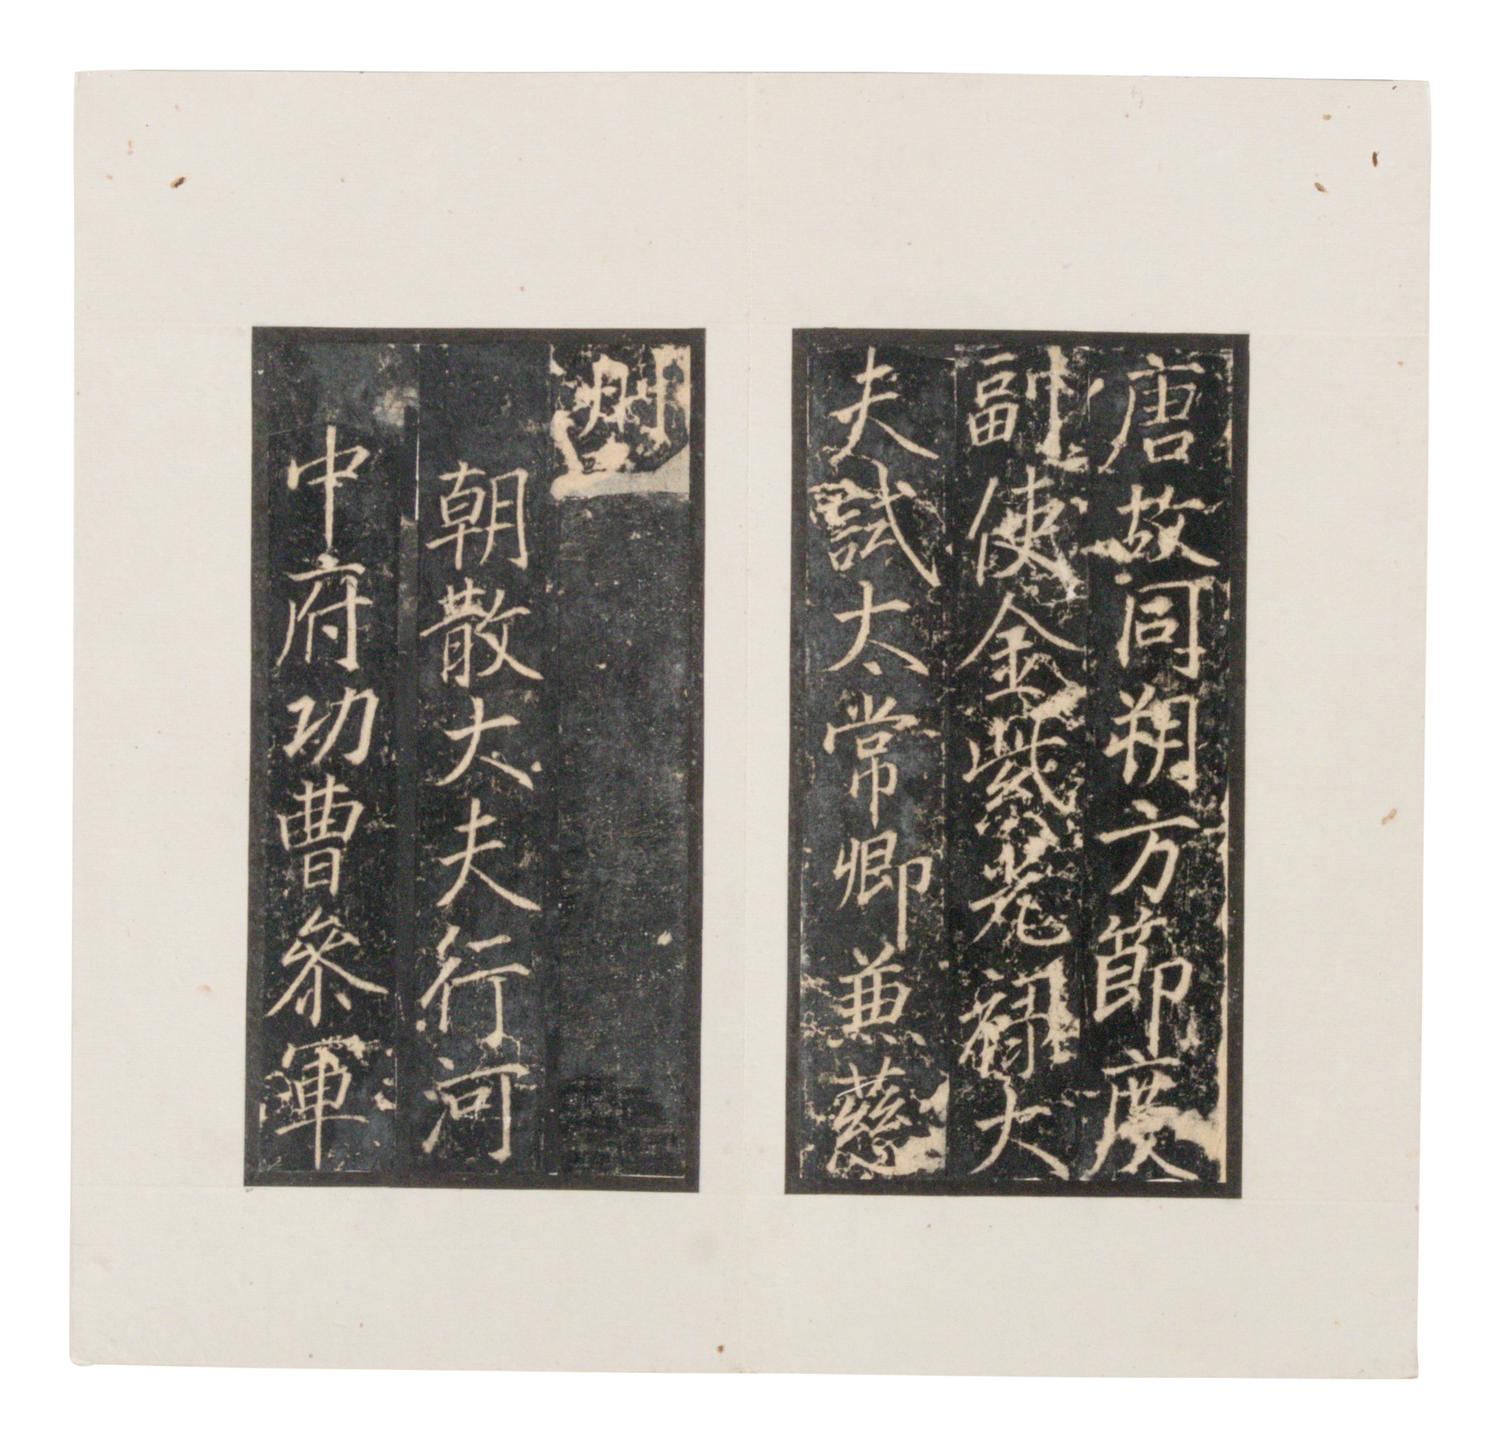 唐故同朔方節度
副使金紫光禄大
夫試太常卿兼慈
州
朝散大夫行河
中府功曹參軍